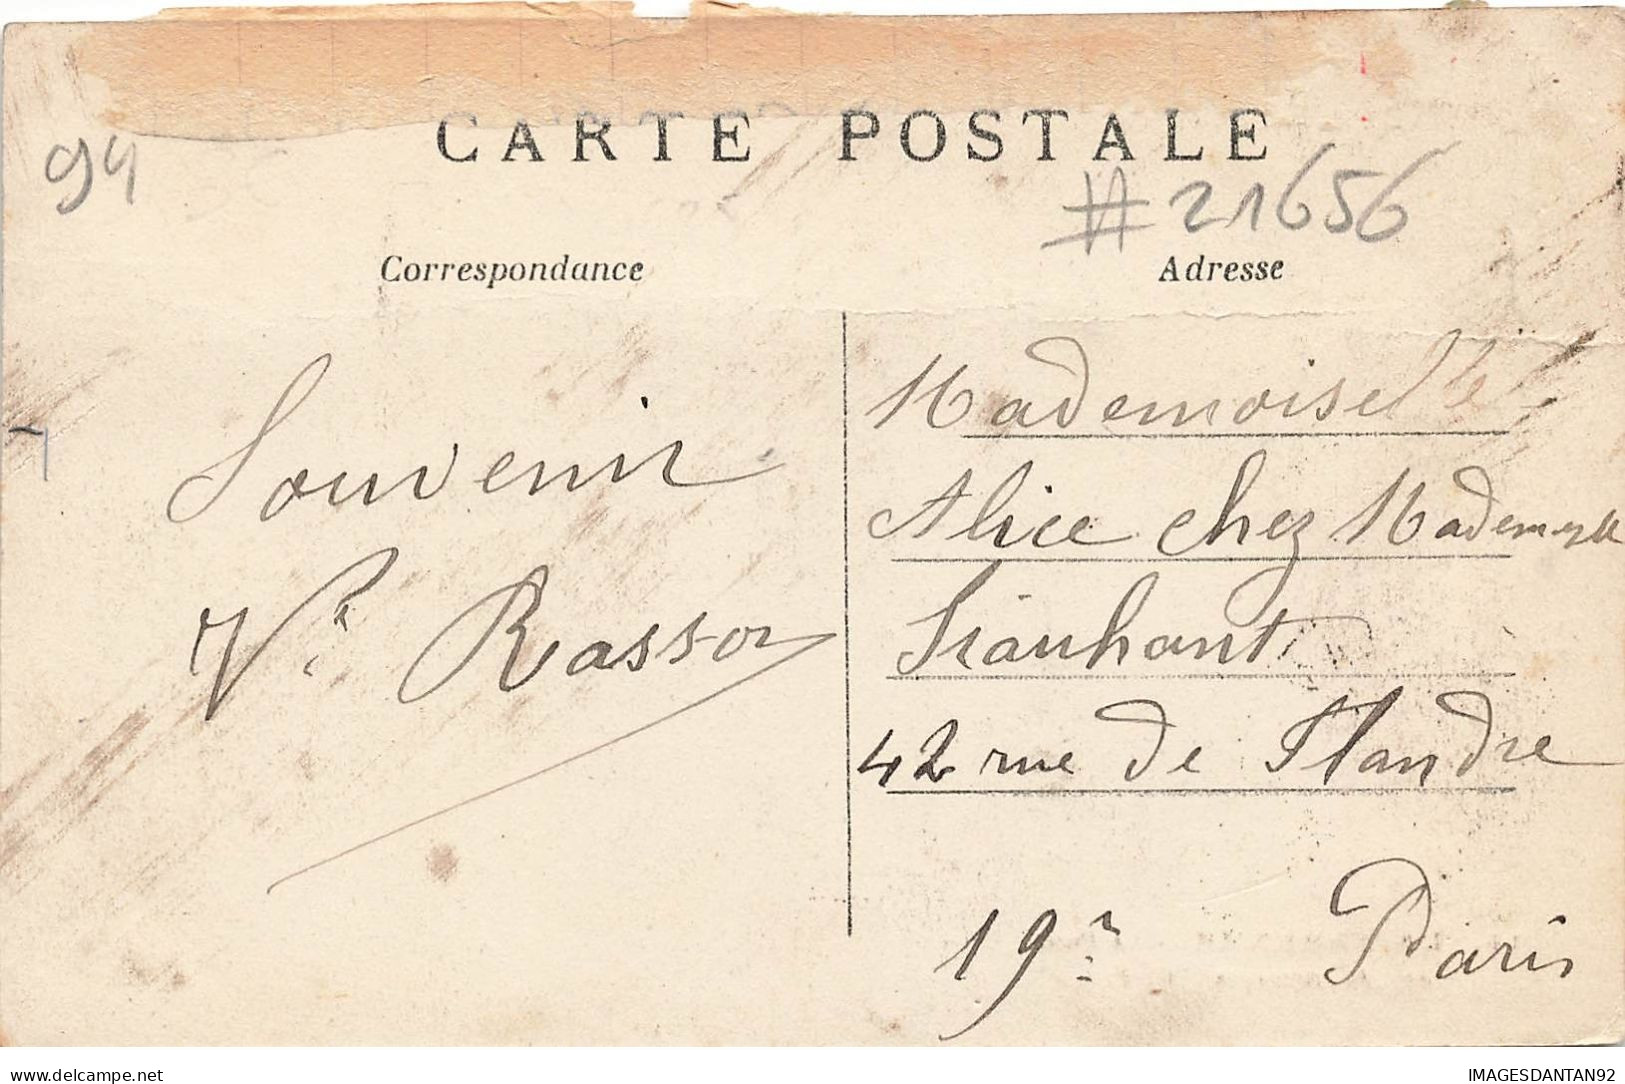 CARTE POSTALE
94
#21656
Correspondance
Adresse
Souvenir
Vr Rasson
Mademoiselle
Alice chez Mademoiselle
42 rue de Flandre
19e Paris
delcampe.net
IMAGESDANTAN92